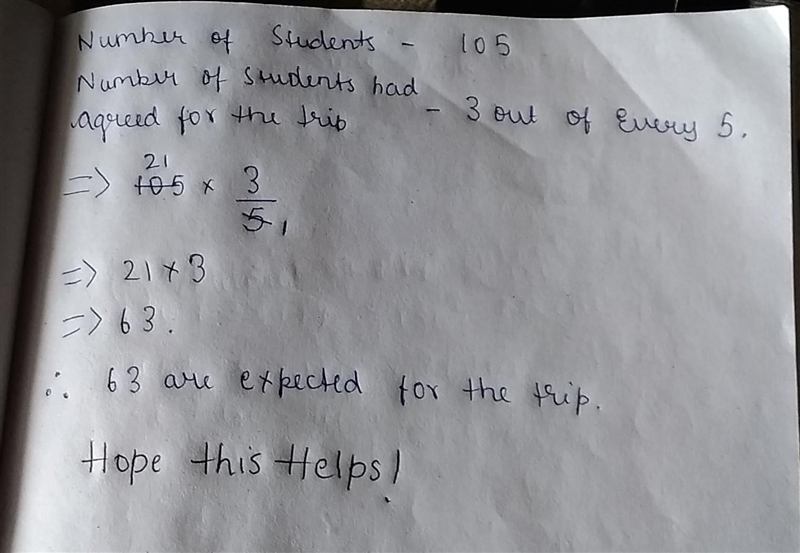 Number of Students - 105
Number of Students had
agreed for the trip - 3 out of Every 5.
21
=> 105 × 3/5 1
=> 21 × 3
=> 63.
∴ 63 are expected for the trip.
Hope this Helps!